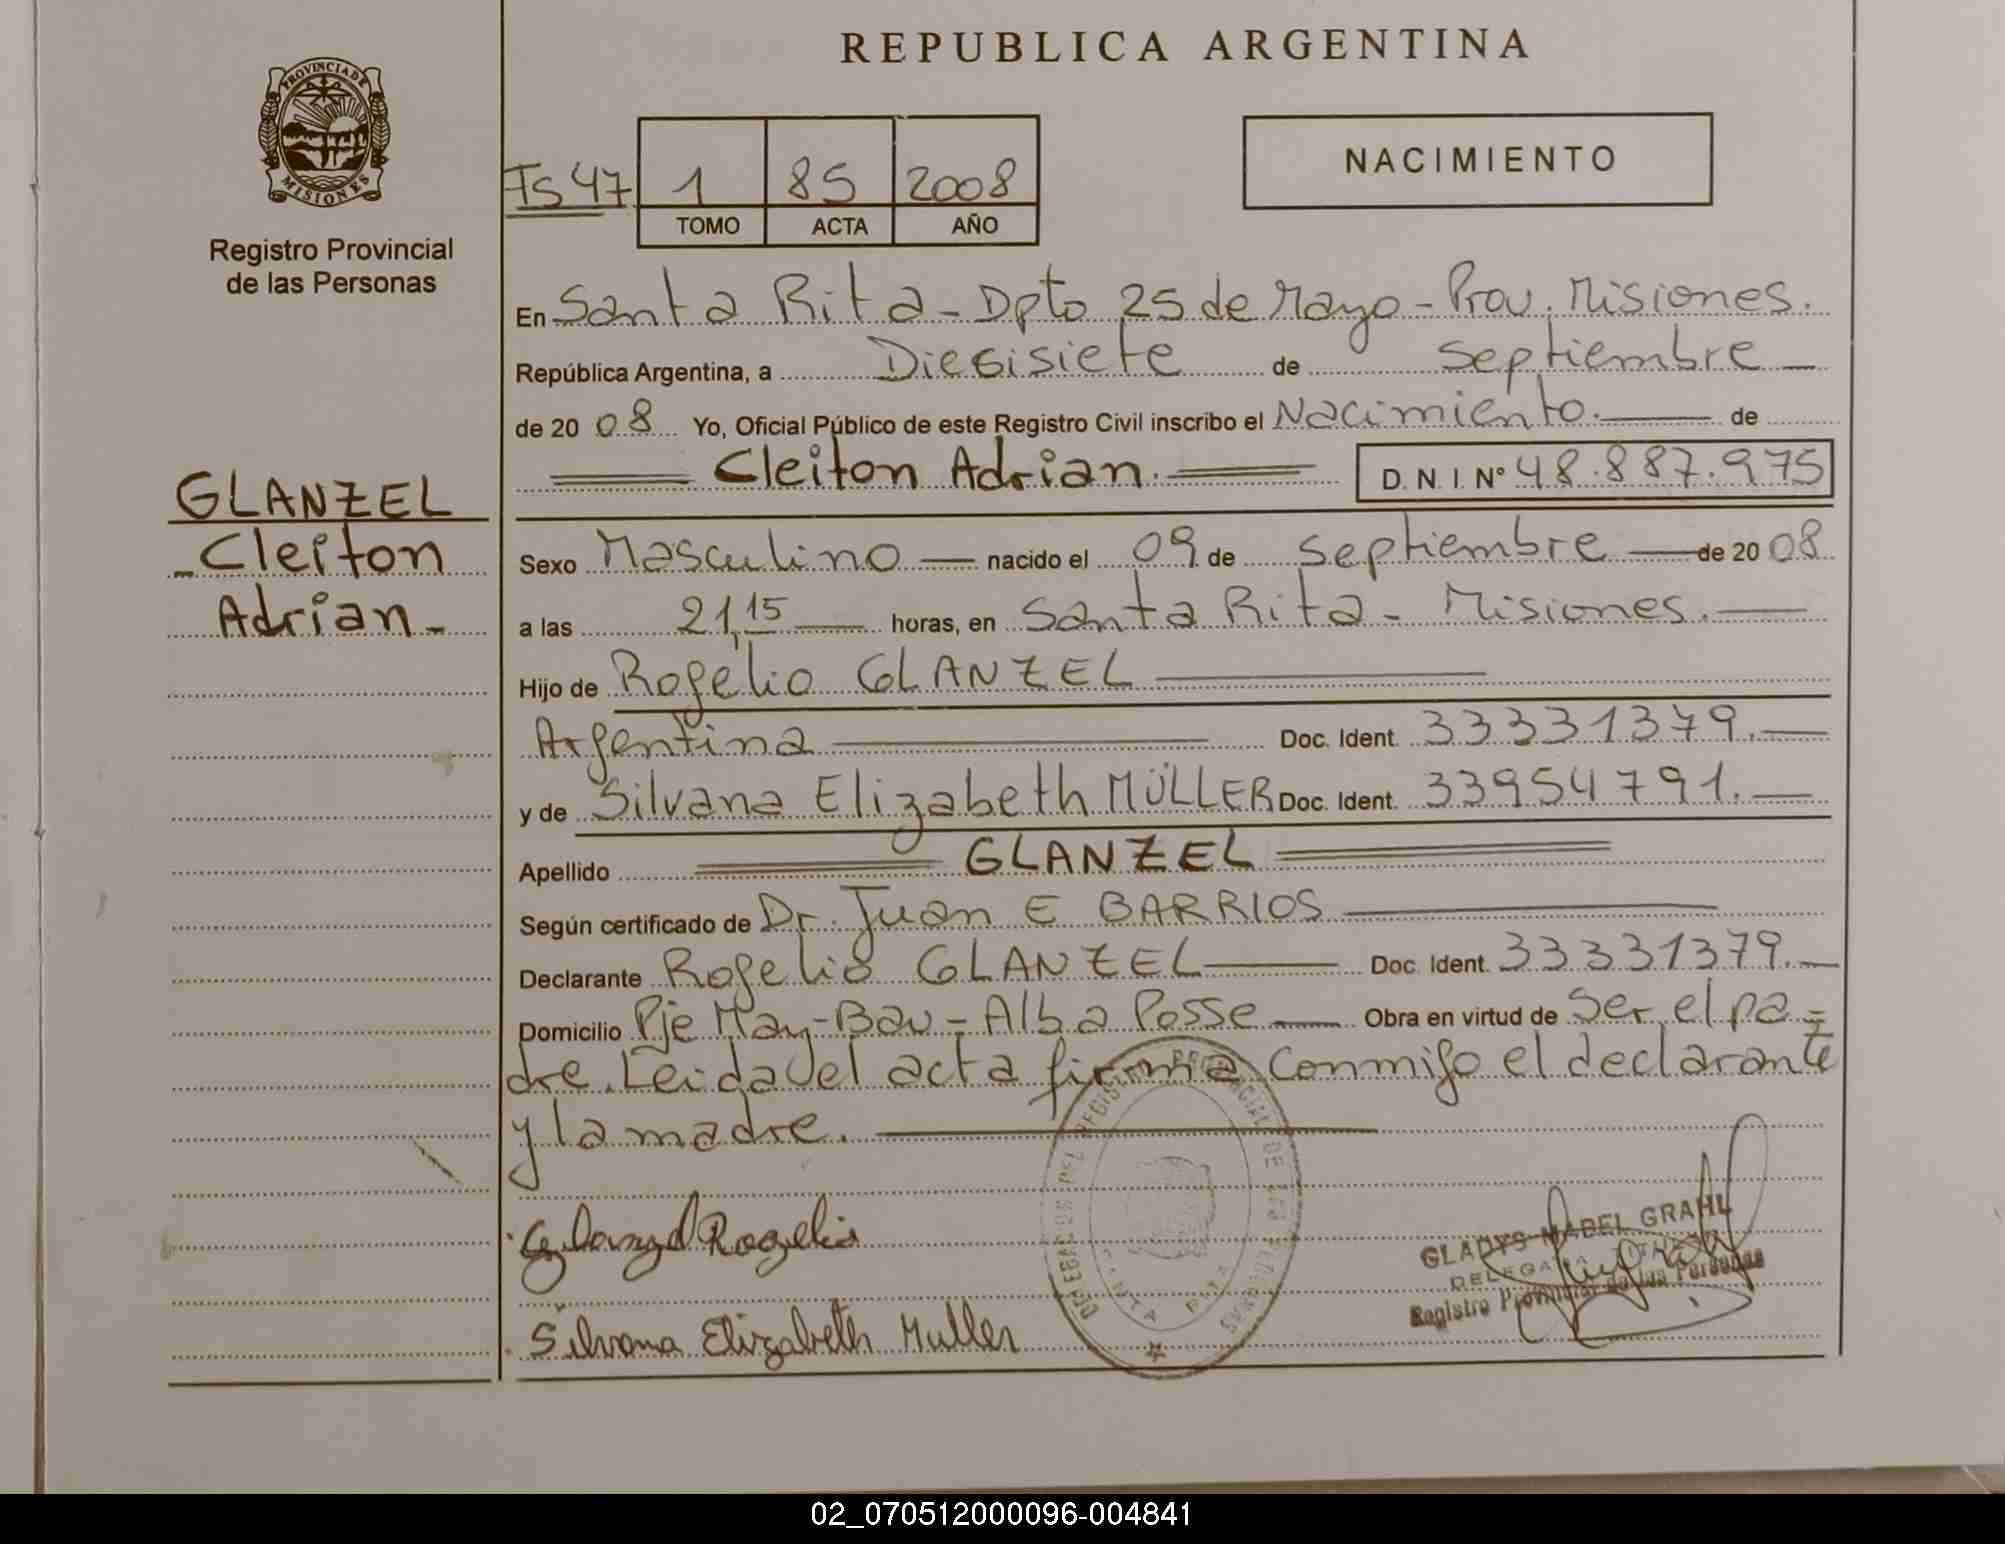 REPUBLICA ARGENTINA
PROVINCIA DE
MISIONES
Registro Provincial
de las Personas
NACIMIENTO
Fs 47
1 85 2008
TOMO ACTA AÑO
En Santa Rita - Dpto 25 de Mayo - Prov. Misiones.
República Argentina, a Diesisiete de Septiembre
de 2008 Yo, Oficial Público de este Registro Civil inscribo el Nacimiento. de
Cleiton Adrian. D.N.I. Nº 48.887.975
GLANZEL
Cleiton
Adrian
Sexo Masculino nacido el 09 de Septiembre de 2008
a las 21,15 horas, en Santa Rita - Misiones.
Hijo de Rogelio GLANZEL
Argentina Doc. Ident. 33331379.
y de Silvana Elizabeth MÜLLER Doc. Ident. 33954791.
Apellido GLANZEL
Según certificado de Dr. Juan E BARRIOS
Declarante Rogelio GLANZEL Doc. Ident. 33331379.
Domicilio Pje May-Bau - Alba Posse Obra en virtud de Ser el pa=
dre. Leida el acta firma conmigo el declarante
y la madre.
DELEGACION DEL REGISTRO PROVINCIAL DE LAS PERSONAS
SANTA RITA
Glanzel Rogelio
Silvana Elizabeth Muller
GLADYS MABEL GRAHL
DELEGADA TITULAR
Registro Provincial de las Personas
02_070512000096-004841